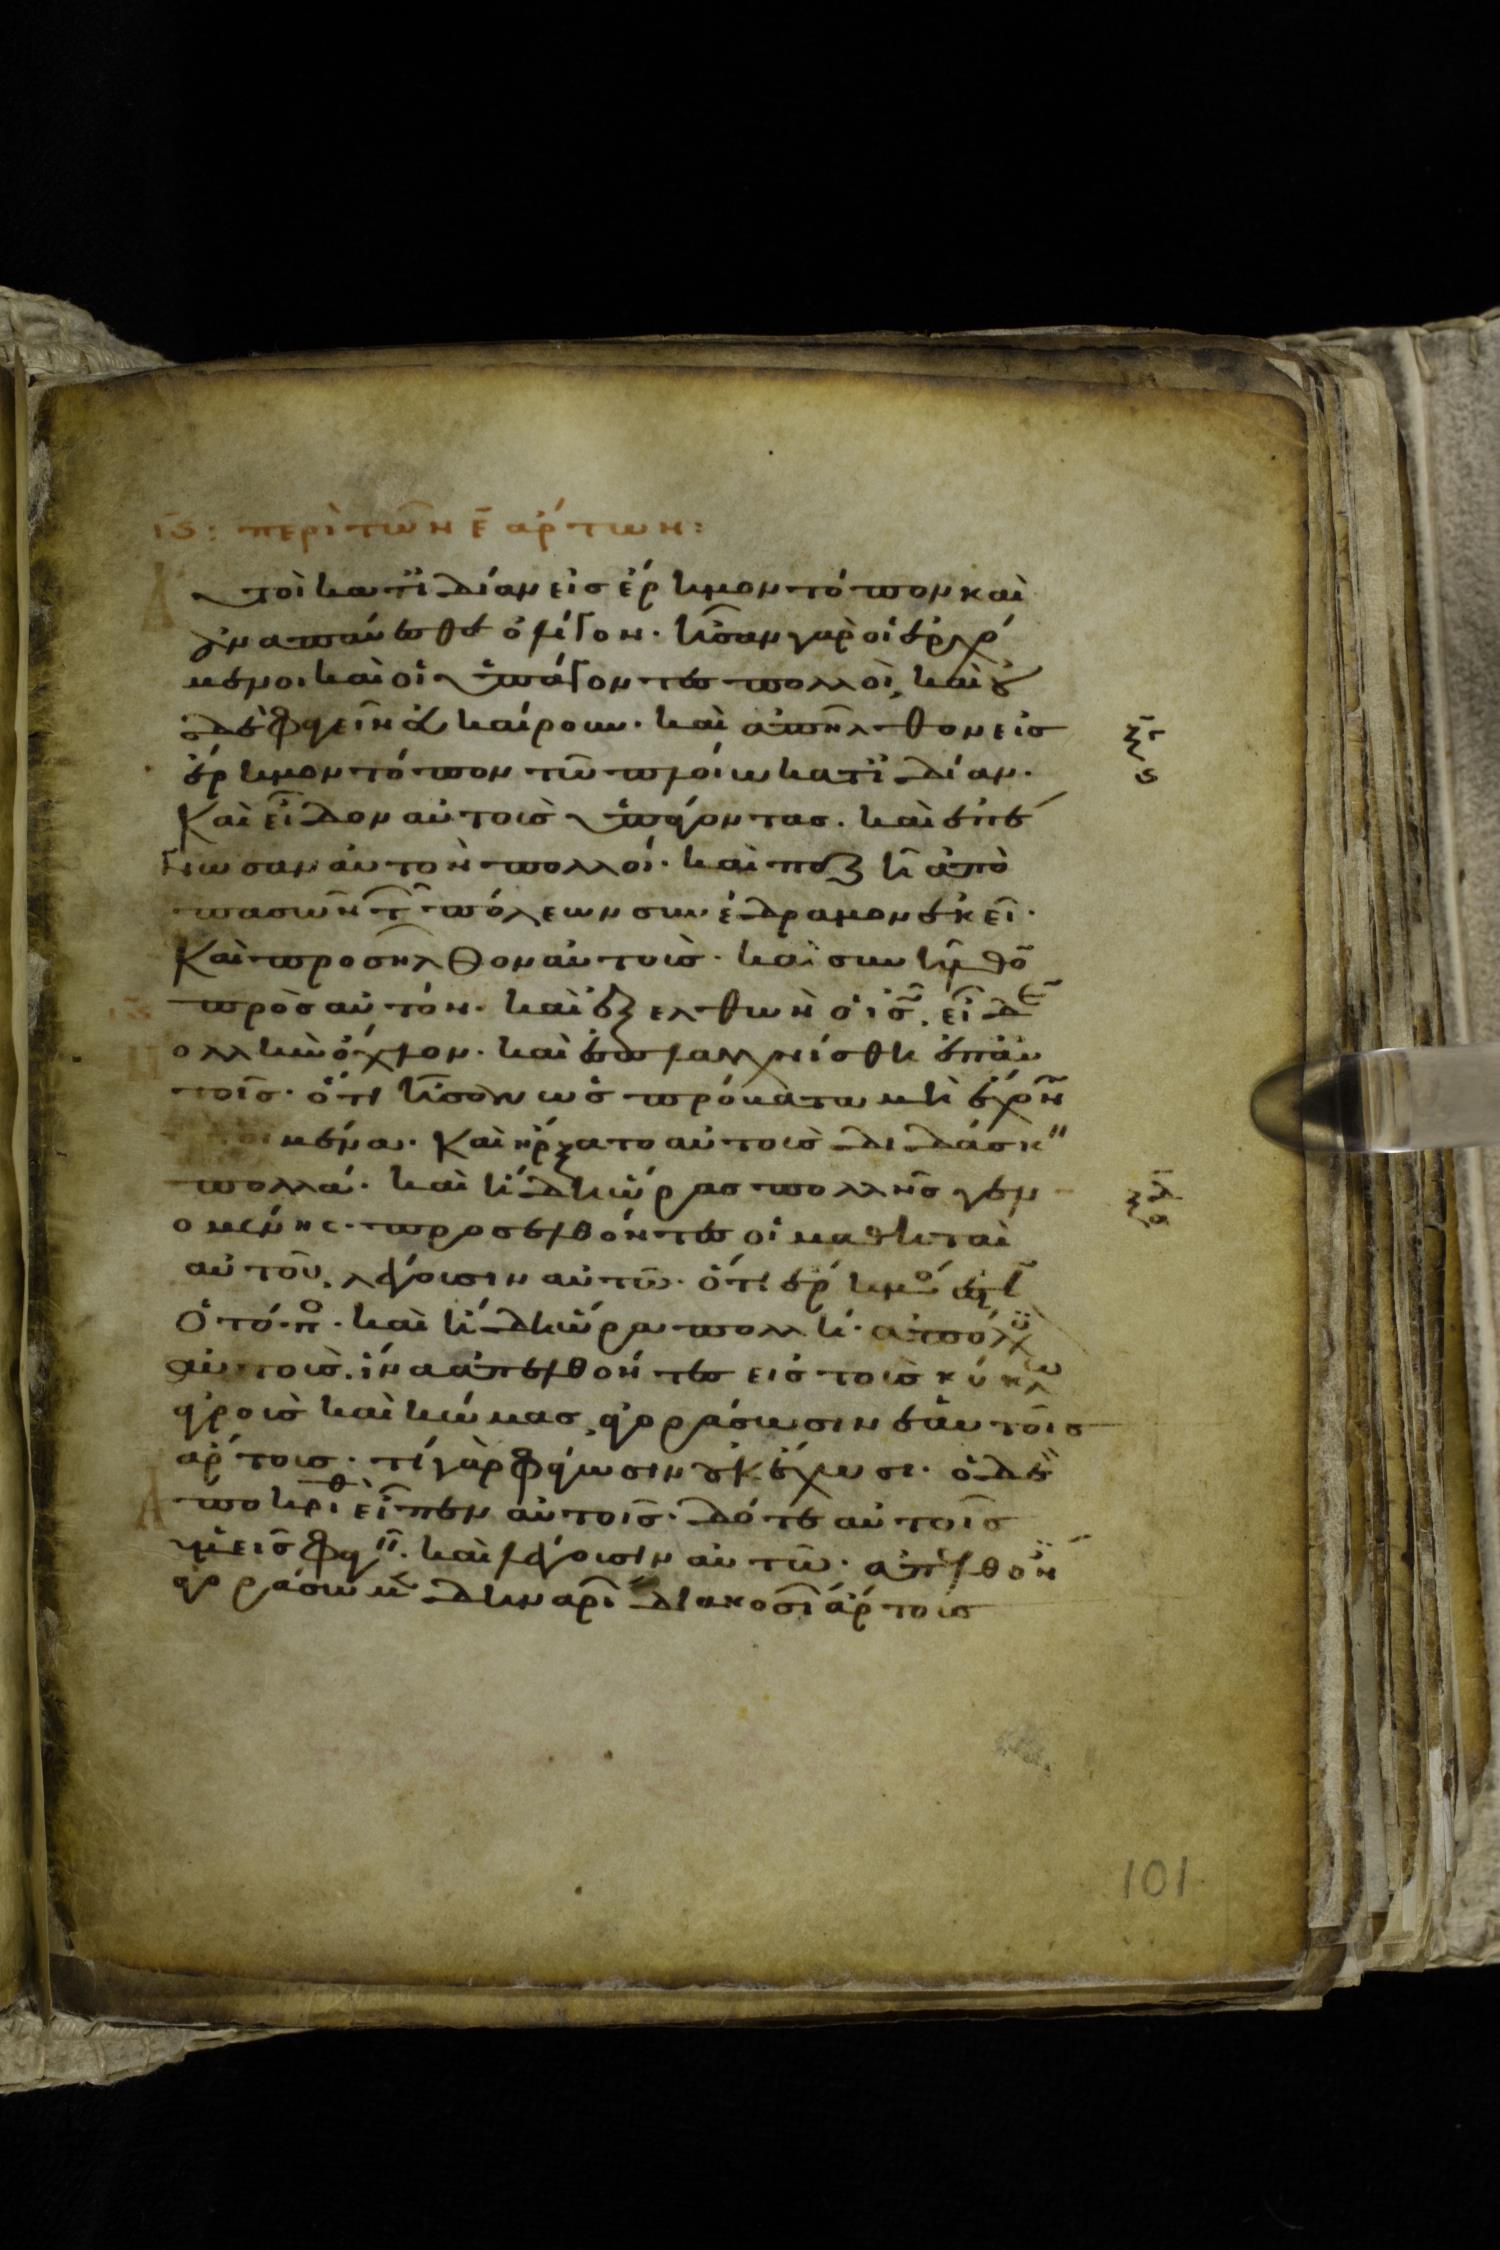 ις: περὶ τῶν ε ἄρτων:
τοὶ κατϊδίαν εἰς ἔρημον τόπον καὶ
ἀναπαύεσθε ὀλίγον· ἦσαν γὰρ οἱ ἐρχό
μενοι καὶ οἱ ὑπάγοντες πολλοὶ, καὶ οὐ
δὲ φαγεῖν εὐκαίρουν· καὶ ἀπῆλθον εἰς
ἔρημον τόπον τῶ πλοίω κατϊδίαν·
Καὶ εἶδον αὐτοὺς ὑπάγοντας· καὶ ἐπέ
γνωσαν αὐτὸν πολλοί· καὶ πεζῆ ἀπὸ
πασῶν τ πόλεων συνέδραμον ἐκεῖ·
Καὶ προσῆλθον αὐτοὺς· καὶ συνῆλθο
πρὸς αὐτόν· καὶ ἐξελθὼν ὁ ις, εἶδε
ολλὴν ὄχλον· καὶ ἐσπλαγχνίσθη ἐπ αὐ
τοῖς· ὅτι ἦσαν ὡς πρόβατα μὴ ἔχον
μένα· Καὶ ἤρξατο αὐτοὺς διδάσκ
πολλά· καὶ ἤδη ὥρας πολλῆς γεν
ομένης· προσελθόντες οἱ μαθηταὶ
αὐτοῦ, λέγουσιν αὐτῶ· ὅτι ἔρημός ἐστ
Ὁ τόπο· καὶ ἤδη ὥρα πολλή· ἀπόλυ
αὐτοὺς· ἵνα ἀπελθόντες εἰς τοὺς κύκλω
ἀγροὺς καὶ κώμας, ἀγοράσωσιν ἑαυτοῖς
ἄρτους· τί γὰρ φάγωσιν οὐκ ἔχουσι· ὁ δὲ
ποκριθ εἶπεν αὐτοῖς· δότε αὐτοῖς
ὑμεῖς φαγ· καὶ λέγουσιν αὐτῶ· ἀπελθόν
ἀγοράσωμ δηναρί διακοσί ἄρτους
101